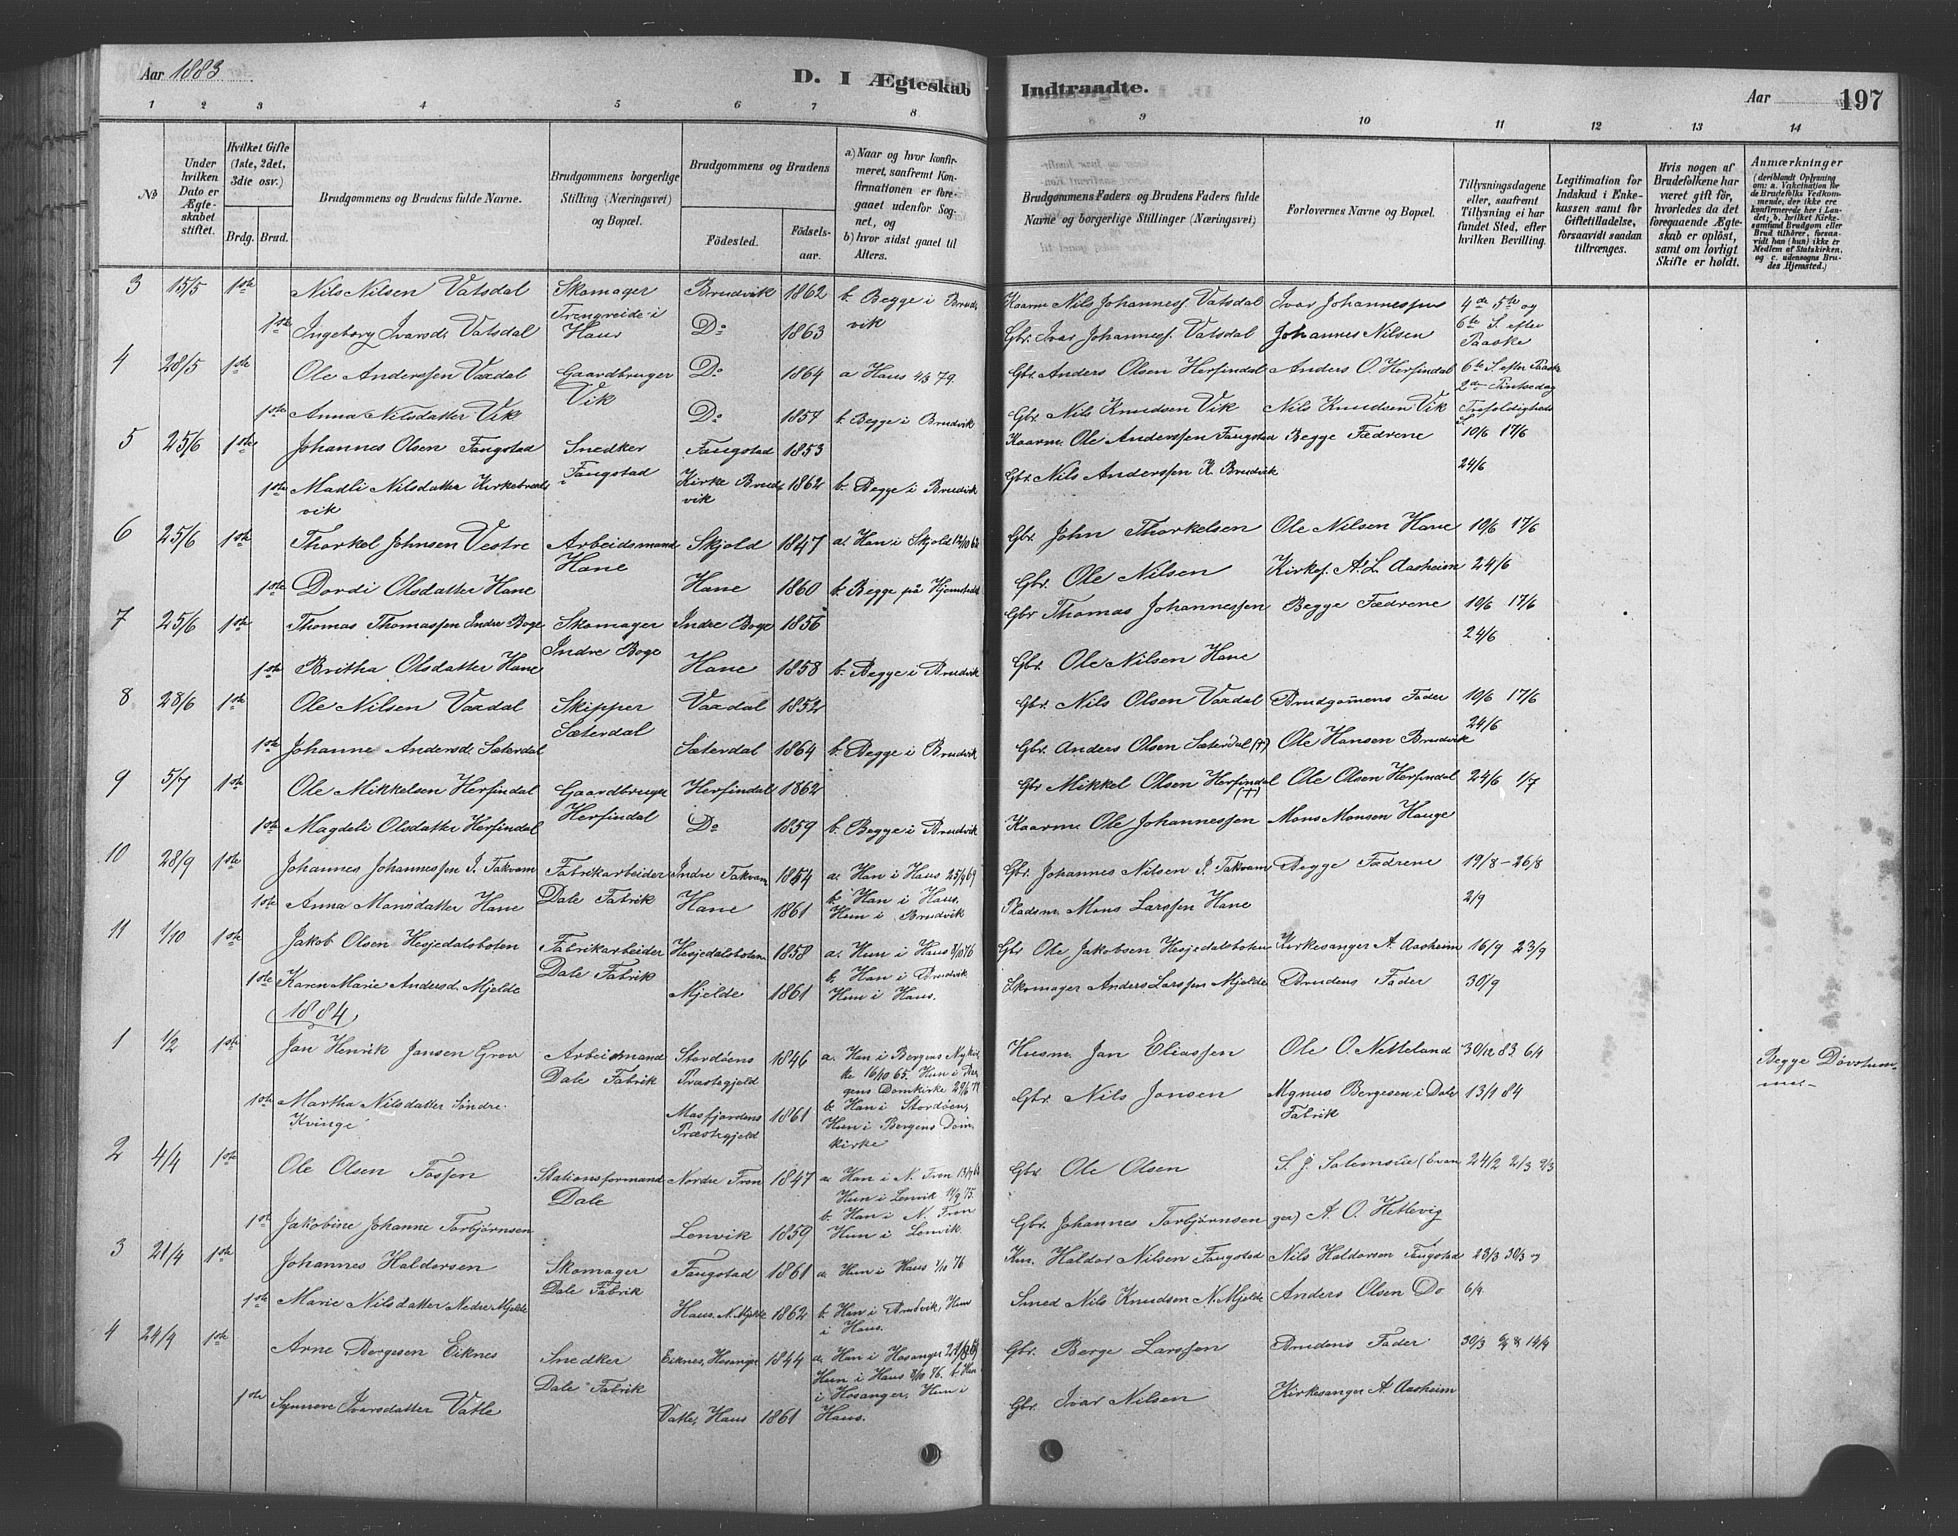 Aar 1883
D. I Ægteskab
Indtraadte.
Aar 197
1 2 3 4 5 6 7 8 9 10 11 12 13 14
№
Under hvilken Dato er Ægteskabet stiftet.
Hvilket Gifte (1ste, 2det, 3die osv.)
Brdg. Brud.
Brudgommens og Brudens fulde Navne.
Brudgommens borgerlige Stilling (Næringsvei) og Bopæl.
Brudgommens og Brudens
Fødested.
Fødselsaar.
a) Naar og hvor konfirmeret, saafremt Konfirmationen er foregaaet udenfor Sognet, og
b) hvor sidst gaaet til Alters.
Brudgommens Faders og Brudens Faders fulde Navne og borgerlige Stillinger (Næringsvei)
Forlovernes Navne og Bopæl.
Tillysningsdagene eller, saafremt Tillysning ei har fundet Sted, efter hvilken Bevilling.
Legitimation for Indskud i Enkekassen samt for Giftetilladelse, forsaavidt saadan tiltrænges.
Hvis nogen af Brudefolkene har været gift før, hvorledes da det foregaaende Ægteskab er opløst, samt om lovligt Skifte er holdt.
Anmærkninger (deriblandt Oplysning om: a. Vakcination for de Brudefolks Vedkommende, der ikke ere konfirmerede her i Landet; b. hvilket Kirkesamfund Brudgom eller Brud tilhører, forsaavidt han (hun) ikke er Medlem af Statskirken, og c. udensogns Brudes Hjemsted.)
3 15/5 1ste Nils Nilsen Vatsdal Skomager Brudvik 1862 b. Begge i Brud- Kaarm Nils Johannesf. Vatsdal Ivar Johannessen 4de 5te og
Trengreide i vik
1ste Ingeborg Ivarsd. Vatsdal Haus Do 1863 Gbr. Ivar Johannesf. Vatsdal Johannes Nilsen 6te S. efter Paaske
4 28/5 1ste Ole Anderssen Vaxdal Gaardbruger Do 1864 a Haus 4/5 79. Gbr. Anders Olsen Herfindal Anders O. Herfindal 6te S. efter Paaske
Vik 2den Pintsedag
1ste Anna Nilsdatter Vik Do 1857 b. Begge i Brudvik Gbr. Nils Knudsen Vik Nils Knudsen Vik Trefoldigheds S.
5 25/6 1ste Johannes Olsen Fangstad Snedker Fangstad 1853 Kaarm. Ole Anderssen Fangstad Begge Fædrene 10/6 17/6
i Fangstad
1ste Madli Nilsdatter Kirkebrud- Kirke Brud- 1862 b. Begge i Brudvik Gbr. Nils Anderssen K. Brudvik 24/6
vik vik
6 25/6 1ste Thorkel Johnsen Vestre Arbeidsmand Skjold 1847 a. Han i Skjold 12/10 62 Gbr. John Thorkelsen Ole Nilsen Hane 10/6 17/6
Hane
1ste Dordi Olsdatter Hane Hane 1860 b. Begge på Hjemstedet Gbr. Ole Nilsen Kirkes. A. L. Aasheim 24/6
7 25/6 1ste Thomas Thomassen Indre Boge Skomager Indre Boge 1856 Gbr Thomas Johannessen Begge Fædrene 10/6 17/6
Indre Boge 24/6
1ste Britha Olsdatter Hane Hane 1858 b. Begge i Brudvik Gbr. Ole Nilsen Hane
8 28/6 1ste Ole Nilsen Vaxdal Skipper Vaxdal 1852 Gbr. Nils Olsen Vaxdal Brudgomens Fader 10/6 17/6
Sæterdal 24/6
1ste Johanne Andersd. Sæterdal Sæterdal 1864 b. Begge i Brudvik Gbr. Anders Olsen Sæterdal (†) Ole Hansen Brudvik
9 5/7 1ste Ole Mikkelsen Herfindal Gaardbruger Herfindal 1862 Gbr Mikkel Olsen Herfindal (†) Ole Olsen Herfindal 24/6 1/7
Herfindal
1ste Magdeli Olsdatter Herfindal Do 1859 b. Begge i Brudvik Kaarm. Ole Johannessen Mons Monsen Hauge
10 28/9 1ste Johannes Johannessen I. Takvam Fabrikarbeider Indre Takvam 1854 a. Han i Haus 25/4 69 Gbr. Johannes Nilsen I. Takvam Begge Fædrene 19/8 - 26/8
Dale Fabrik b. Han i Haus,
1ste Anna Monsdatter Hane Hane 1861 Hun i Brudvik Pladsm. Mons Larssen Hane 2/9
11 1/10 1ste Jakob Olsen Hesjedalsboten Fabrikarbeider Hesjedalsboten 1858 a. Hun i Haus 1/10 76 Gbr Ole Jakobsen Hesjedalsboten Kirkesanger A. Aasheim 16/9 23/9
Dale Fabrik b. Han i Brudvik
1ste Karen Marie Andersd. Mjelde Mjelde 1861 Hun i Haus. Skomager Anders Larssen Mjelde Brudens Fader 30/9
1884
1 1/2 1ste Jan Henrik Jansen Grov Arbeidsmand Stordøens 1846 a. Han i Bergens Nykir- Husm. Jan Eliassen Ole O. Netteland 30/12 83. 6/1
Dale Fabrik Præstegjeld ke 16/10 65. Hun i Ber-
gens Domkirke
Begge Døvstum-
me
1ste Martha Nilsdatter Søndre Masfjordens 1861 b. Han i Stordøen, Gbr. Nils Jonsen Mgnus Bergesen i Dale 13/1 84
Kvinge Præstegjeld Hun i Bergens Dom- Fabrik
kirke
2 4/4 1ste Ole Olsen Fossen Stationsformand Nordre Fron 1847 a. Han i N. Fron Gbr. Ole Olsen S. J. Salemslie (Evan- 24/2 2/3 9/3
Dale Hun i Lenvik
b. Han i N. Fron
1ste Jakobine Johanne Torbjørnsen Lenvik 1859 Hun i Lenvik. Gbr. Johannes Torbjørnsen ger) A. O. Hetlevig
3 21/4 1ste Johannes Haldorsen Skomager Fangstad 1861 a. Hun i Haus 1/10 76 Haldor Nilsen Fangstad Nils Haldorsen Fangstad 23/3 30/3 og
Dale Fabrik
1ste Marie Nilsdatter Nedre Mjelde Haus. N. Mjelde 1862 b. Han i Brudvik, Hun Smed Nils Knudsen N. Mjelde Anders Olsen Do 6/4
i Haus.
4 24/4 1ste Arne Bergesen Eiknes Snedker Eiknes, Hosanger 1844 a. Han i Hosanger Gbr. Berge Larssen Brudens Fader 30/3 14/4
Dale Fabrik Hun i Haus 1/10 76. b. Han
i Hosanger, Hun i
1ste Synneve Ivarsdatter Vatle Vatle, Haus 1861 Haus. Gbr. Ivar Nilsen Kirkesanger A. Aasheim